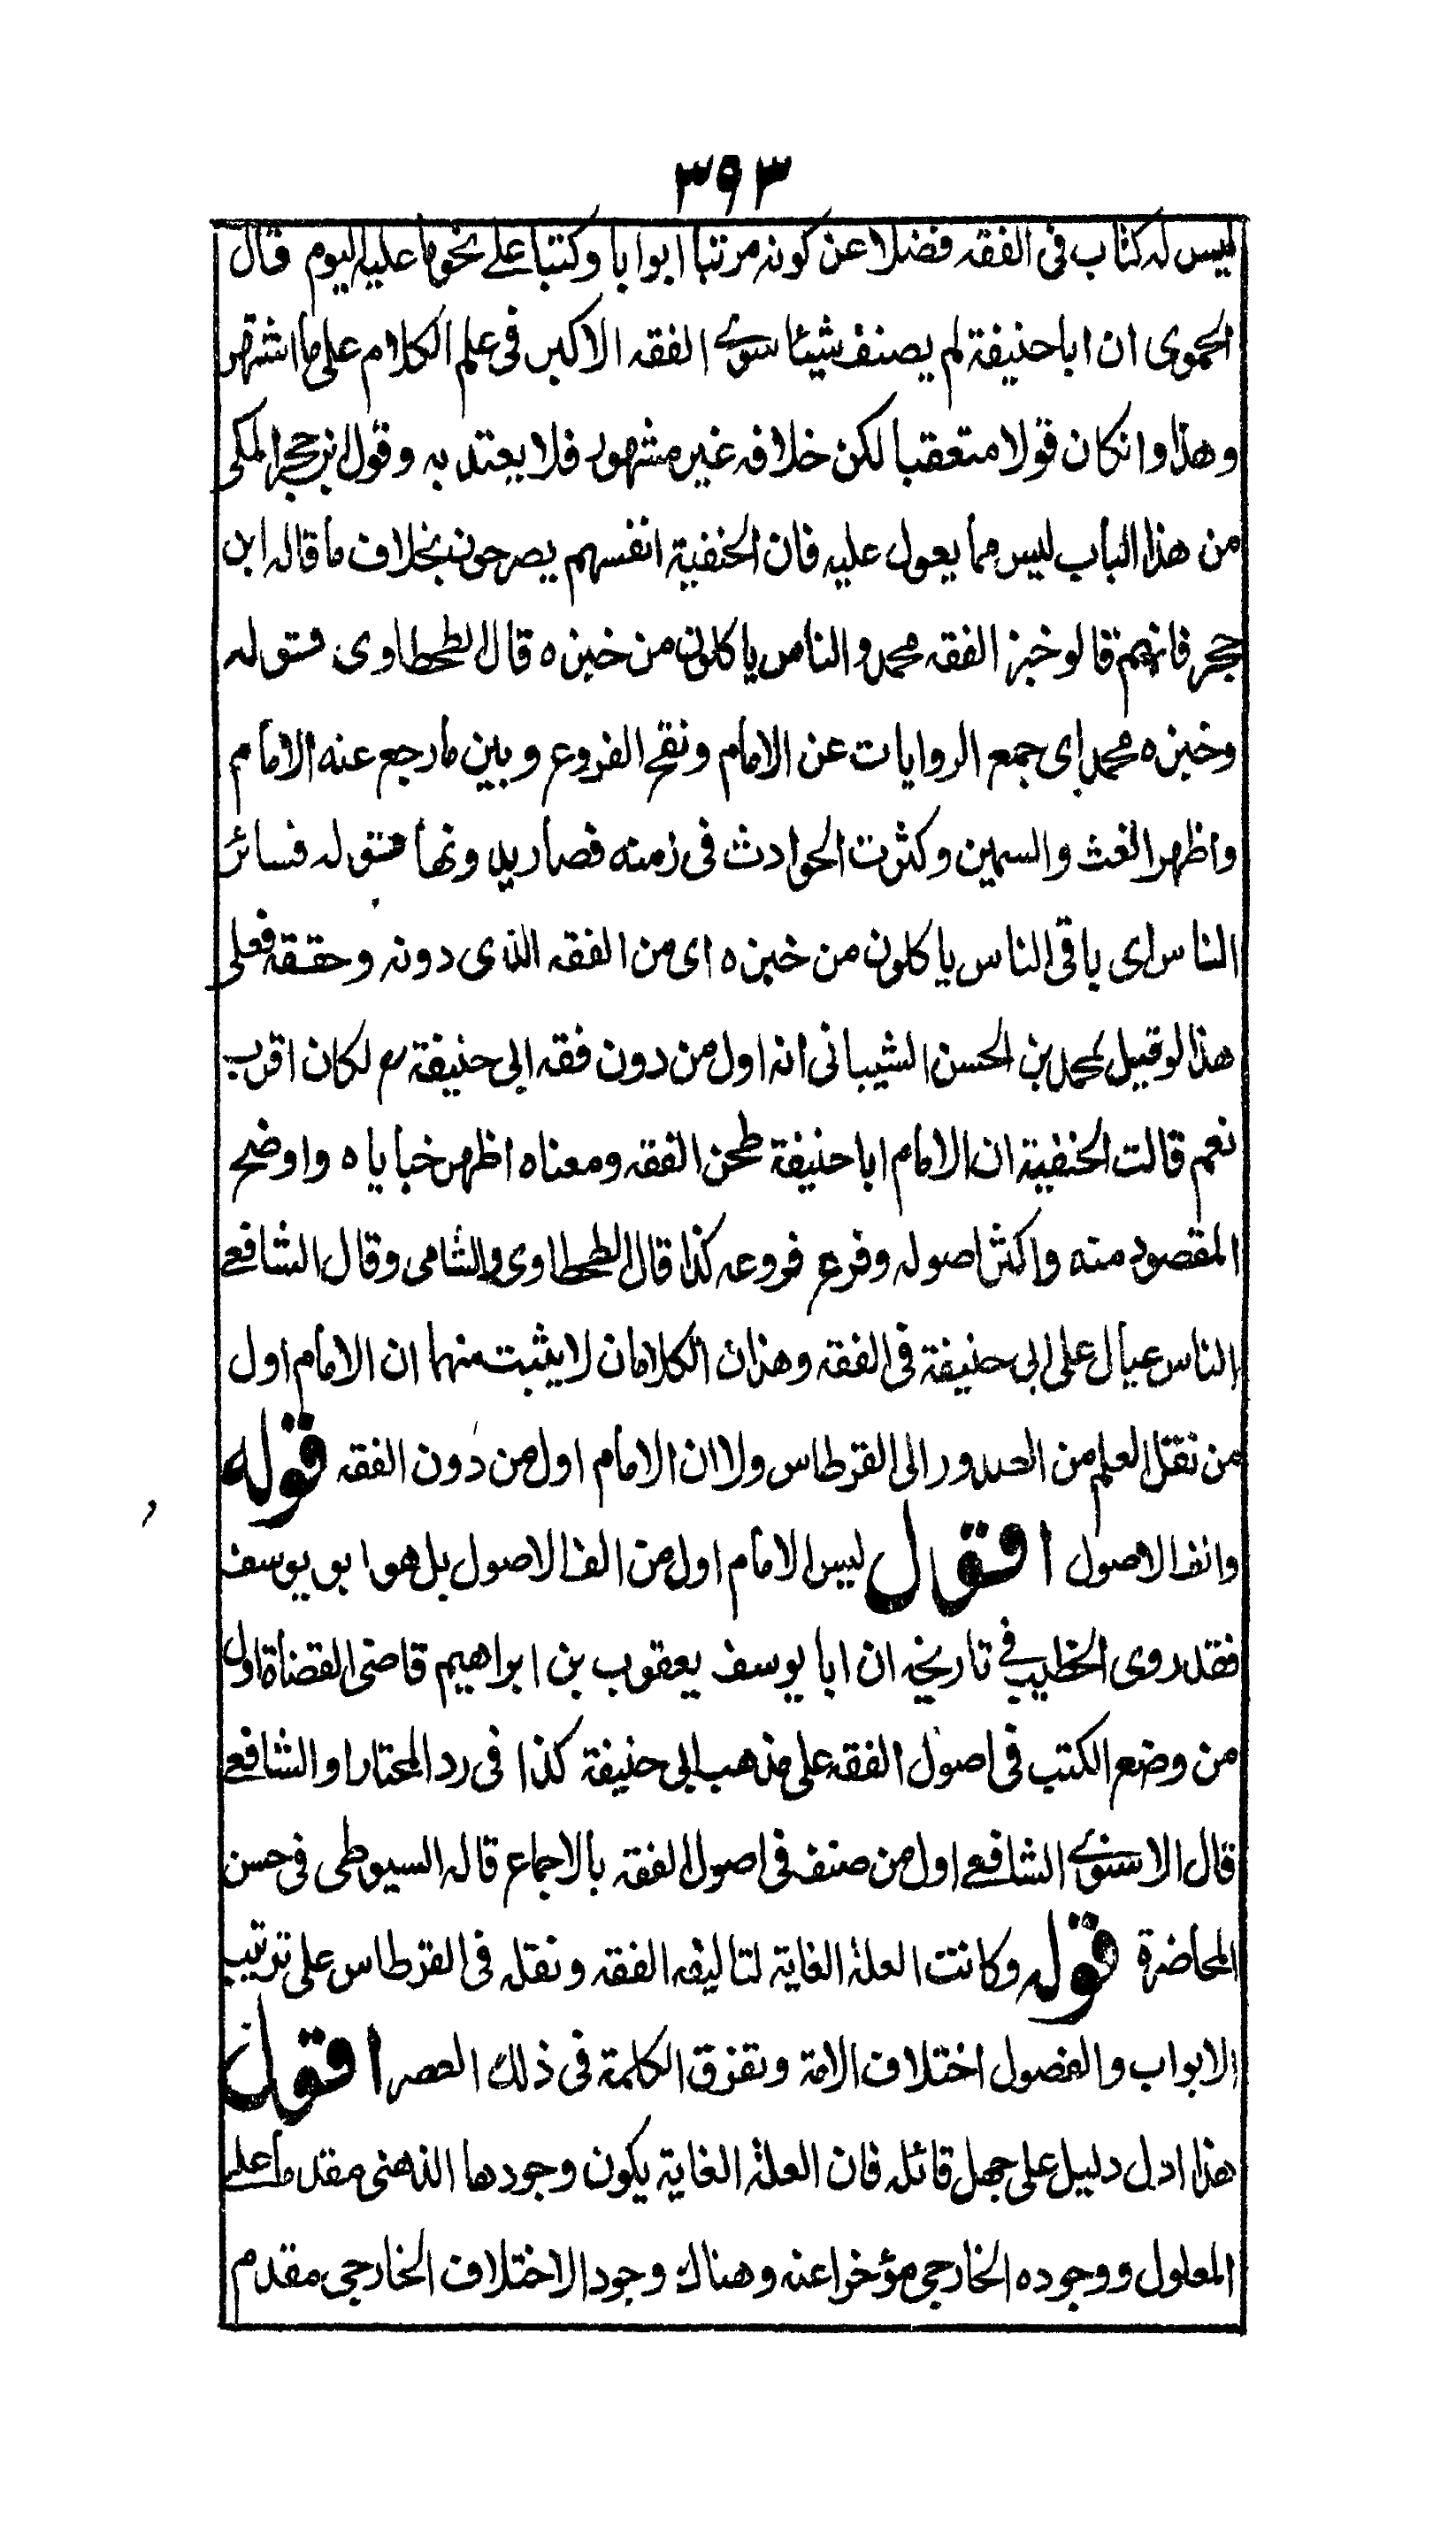 ٣٩٣
ليس له كتاب فى الفقه فضلا عن كونه مرتبا ابوابا وكتبا على نحو ما عليه اليوم قال
الحموى ان اباحنيفة لم يصنف شيئا سوے الفقه الاكبر فى علم الكلام على ما اشتهر
وهذا وانكان قولا متعقبا لكن خلافه غير مشهور فلا يعتد به وقول ابن حجر المكى
من هذا الباب ليس مما يعول عليه فان الحنفية انفسهم يصرحون بخلاف ما قاله ابن
حجر فانهم قالو خبز الفقه محمد والناس ياكلون من خبزه قال الطحطاوى فقوله
وخبزه محمد اى جمع الروايات عن الامام ونقح الفروع وبين ما رجع عنه الامام
واظهر الغث والسمين وكثرت الحوادث فى زمنه فصار يدونها فقوله فسائر
الناس اى باقى الناس ياكلون من خبزه اى من الفقه الذى دونه وحققه فعلى
هذا لو قيل لمحمد بن الحسن الشيبانى انه اول من دون فقه ابى حنيفة رح لكان اقرب
نعم قالت الحنفية ان الامام اباحنيفة طحن الفقه ومعناه اظهر خباياه واوضح
المقصود منه واكثر اصوله وفرع فروعه كذا قال الطحطاوى والشامى وقال الشافعے
الناس عيال على ابى حنيفة فى الفقه وهذان الكلامان لا يثبت منهما ان الامام اول
من نقل العلم من الصدور الى القرطاس ولا ان الامام اول من دون الفقه قوله
وانف الاصول اقول ليس الامام اول من الف الاصول بل هو ابو يوسف
فقد روى الخطيب فے تاريخه ان ابا يوسف يعقوب بن ابراهيم قاضى القضاة اول
من وضع الكتب فى اصول الفقه على مذهب ابى حنيفة كذا فى رد المحتار او الشافعے
قال الاسنوے الشافعے اول من صنف فى اصول الفقه بالاجماع قاله السيوطى فى حسن
المحاضرة قوله وكانت العلة الغاية لتاليفه الفقه ونقله فى القرطاس على ترتيب
الابواب والفصول اختلاف الامة وتفرق الكلمة فى ذلك العصر اقول
هذا ادل دليل على جهل قائله فان العلة الغاية يكون وجودها الذهنى مقدما علے
المعلول ووجوده الخارجى مؤخرا عنه وهناك وجود الاختلاف الخارجى مقدم